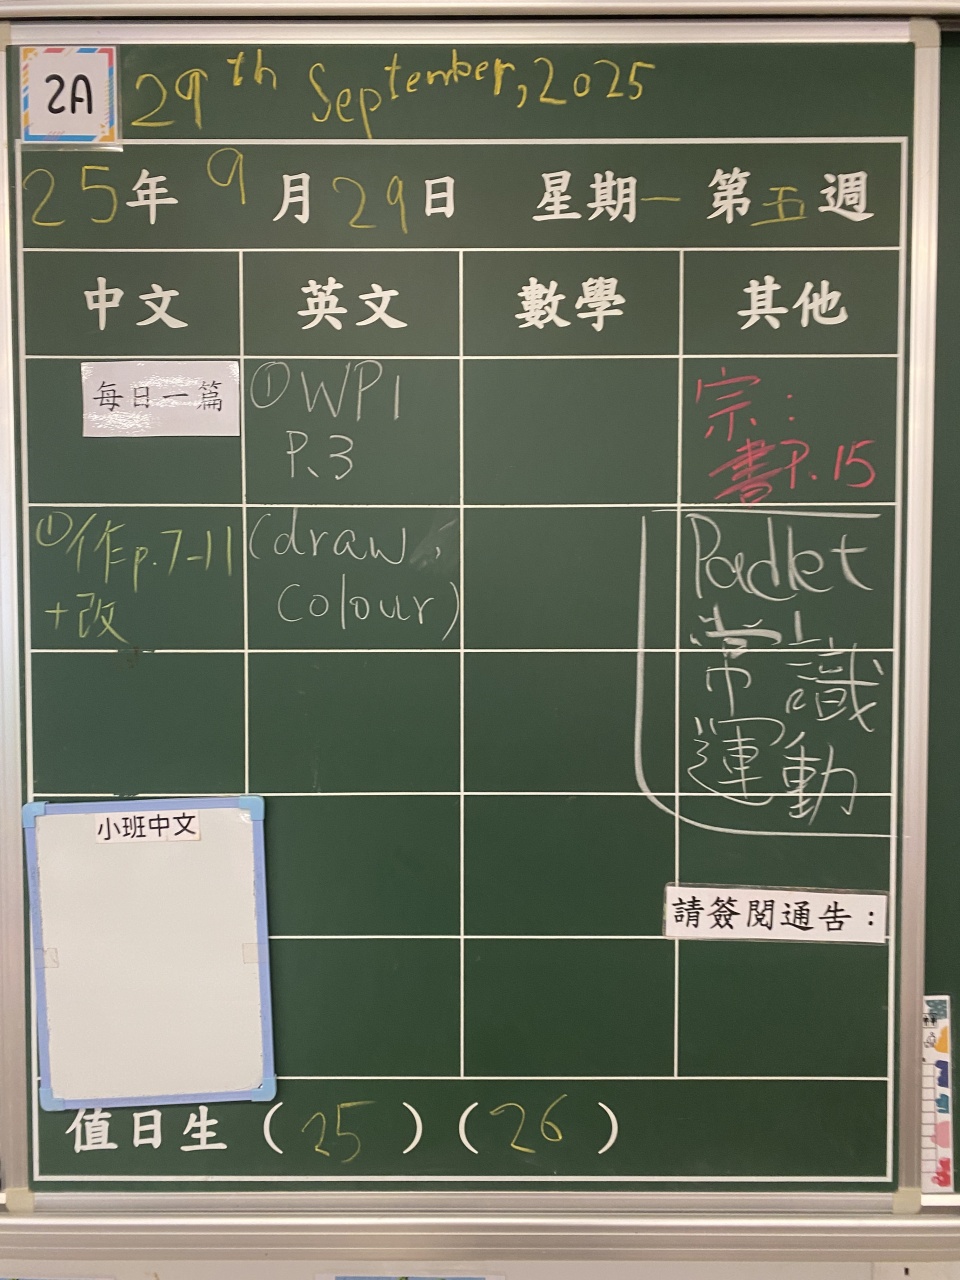 2A
29th September, 2025
25年 9月 29日 星期一 第五週
中文 英文 數學 其他
每日一篇
①作p.7-11
+改
①WP1
P.3
(draw,
colour)
宗:
書P.15
Padlet
常識
運動
小班中文
請簽閱通告：
值日生（25）（26）